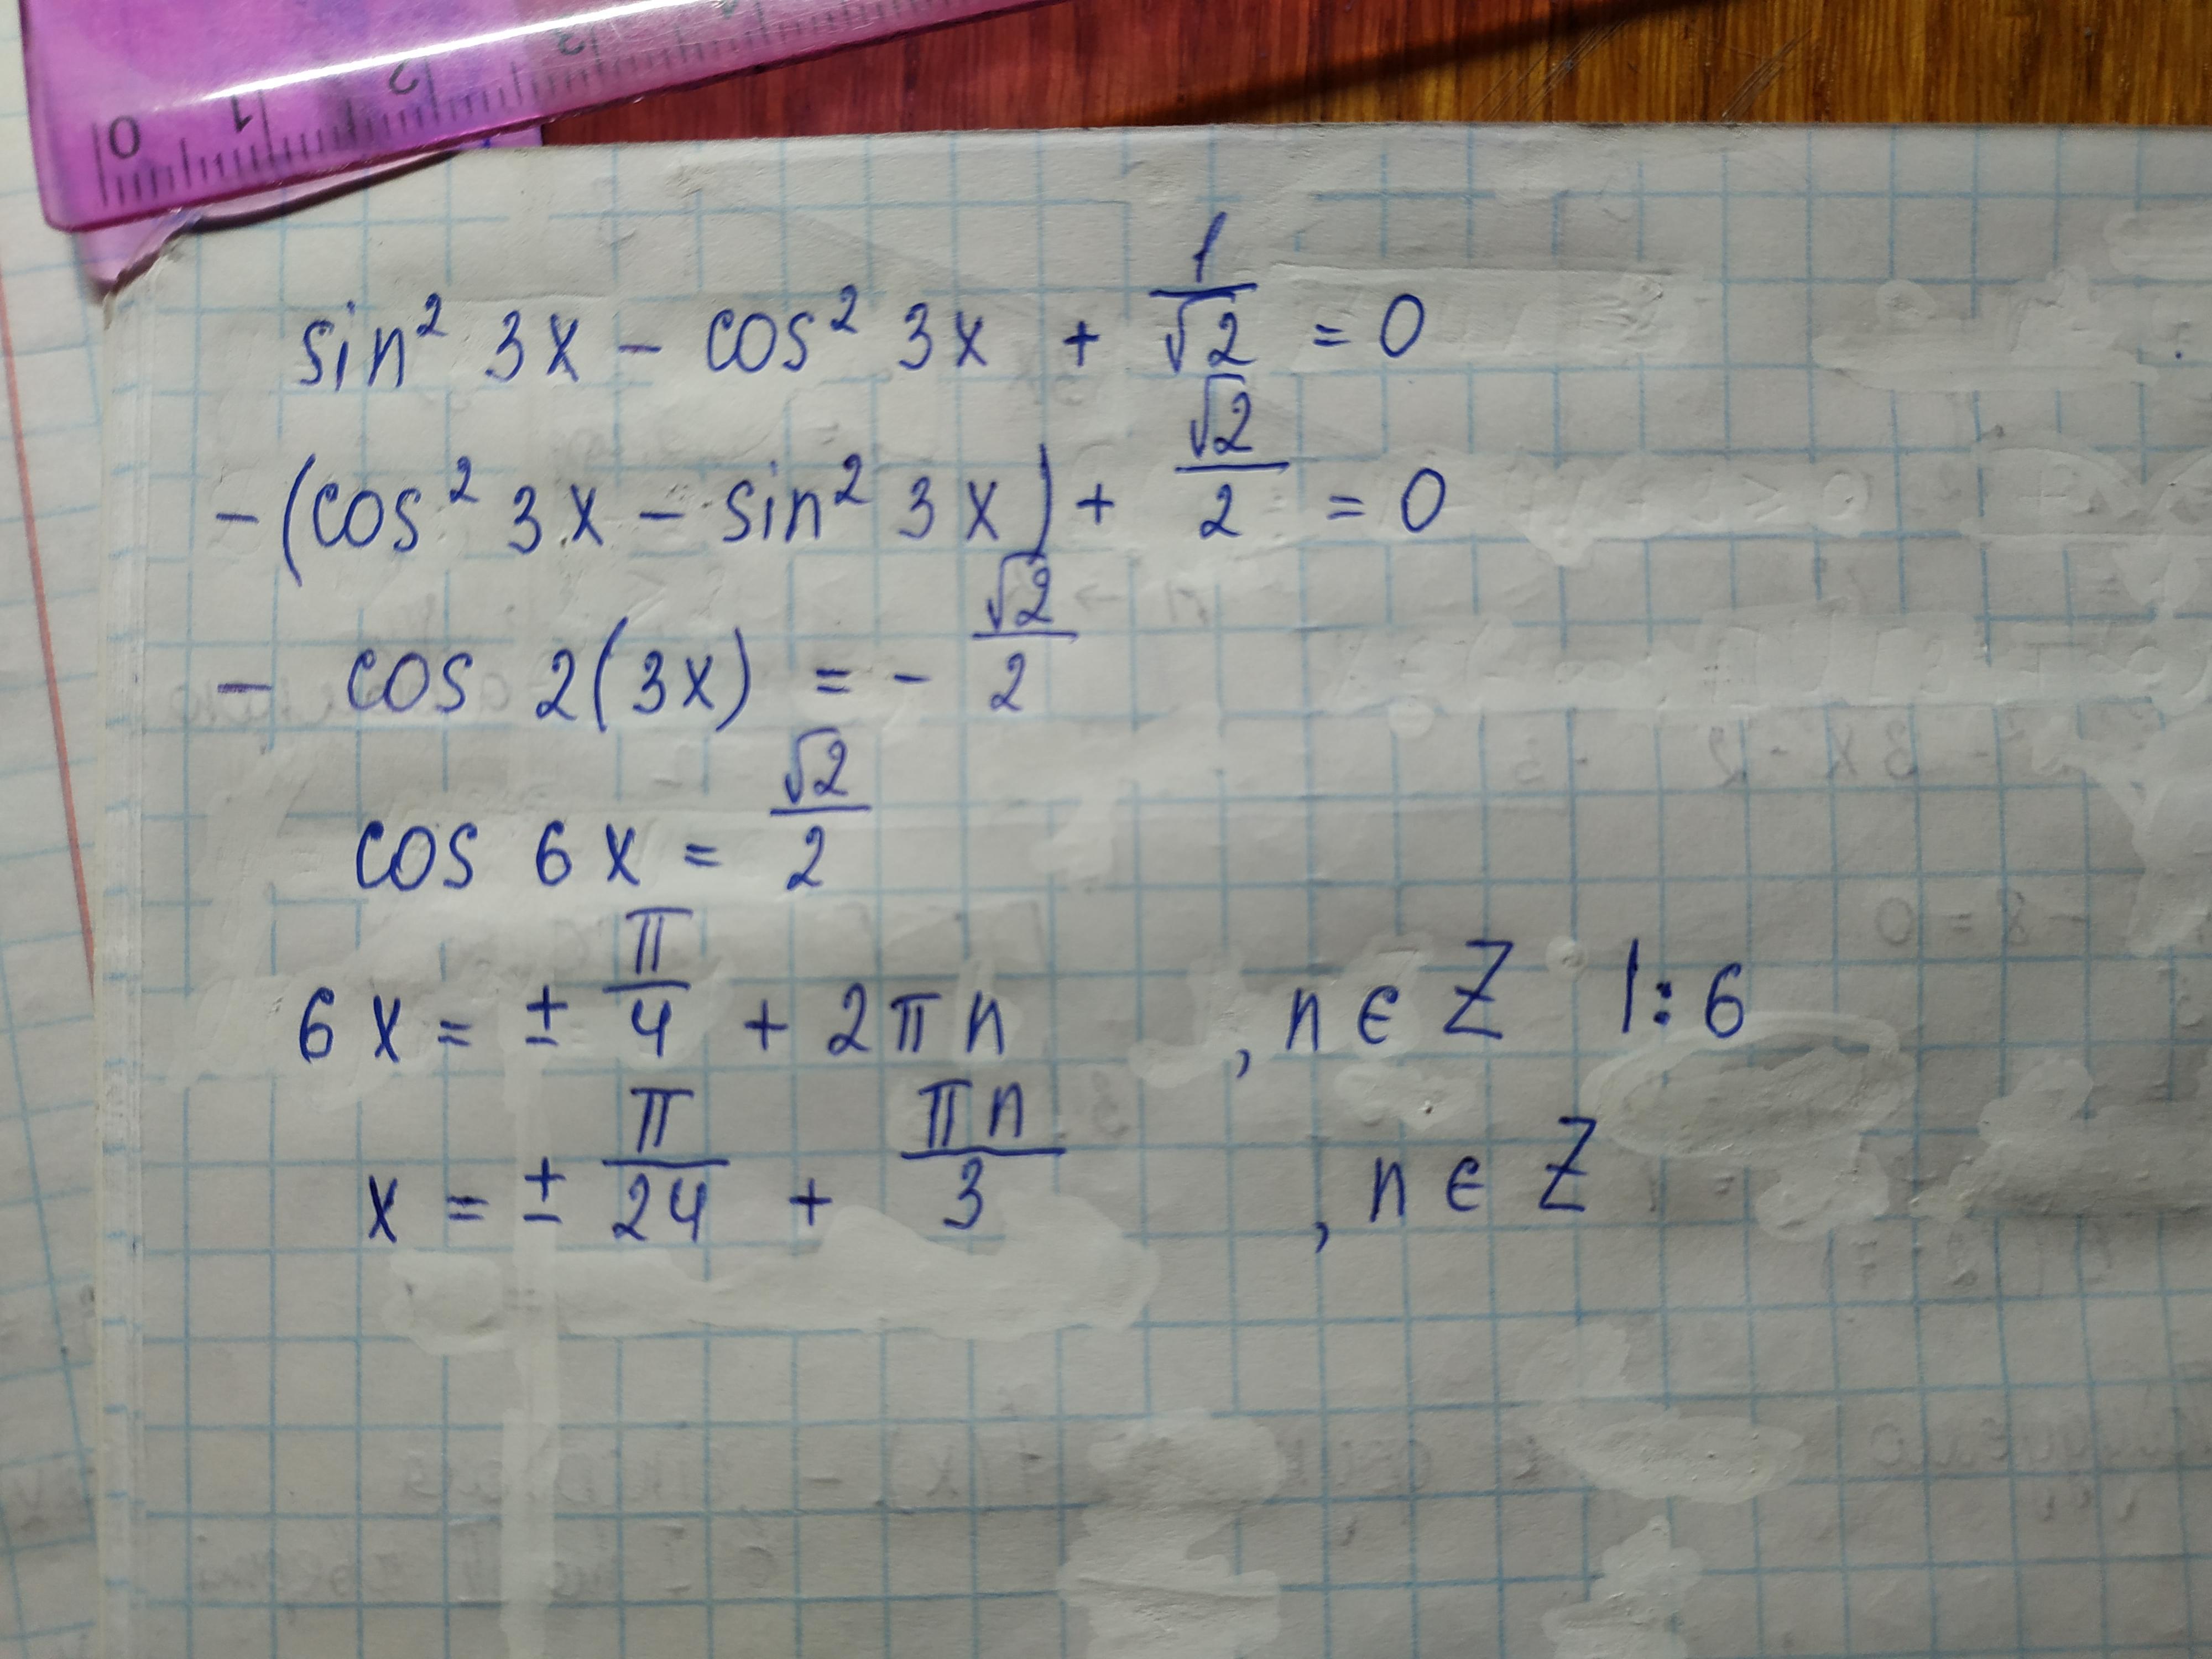 0 1 2 3
sin² 3x - cos² 3x + 1/√2 = 0
-(cos² 3x - sin² 3x) + √2/2 = 0
- cos 2(3x) = - √2/2
cos 6x = √2/2
6x = ± π/4 + 2πn , n ∈ Z |: 6
x = ± π/24 + πn/3 , n ∈ Z